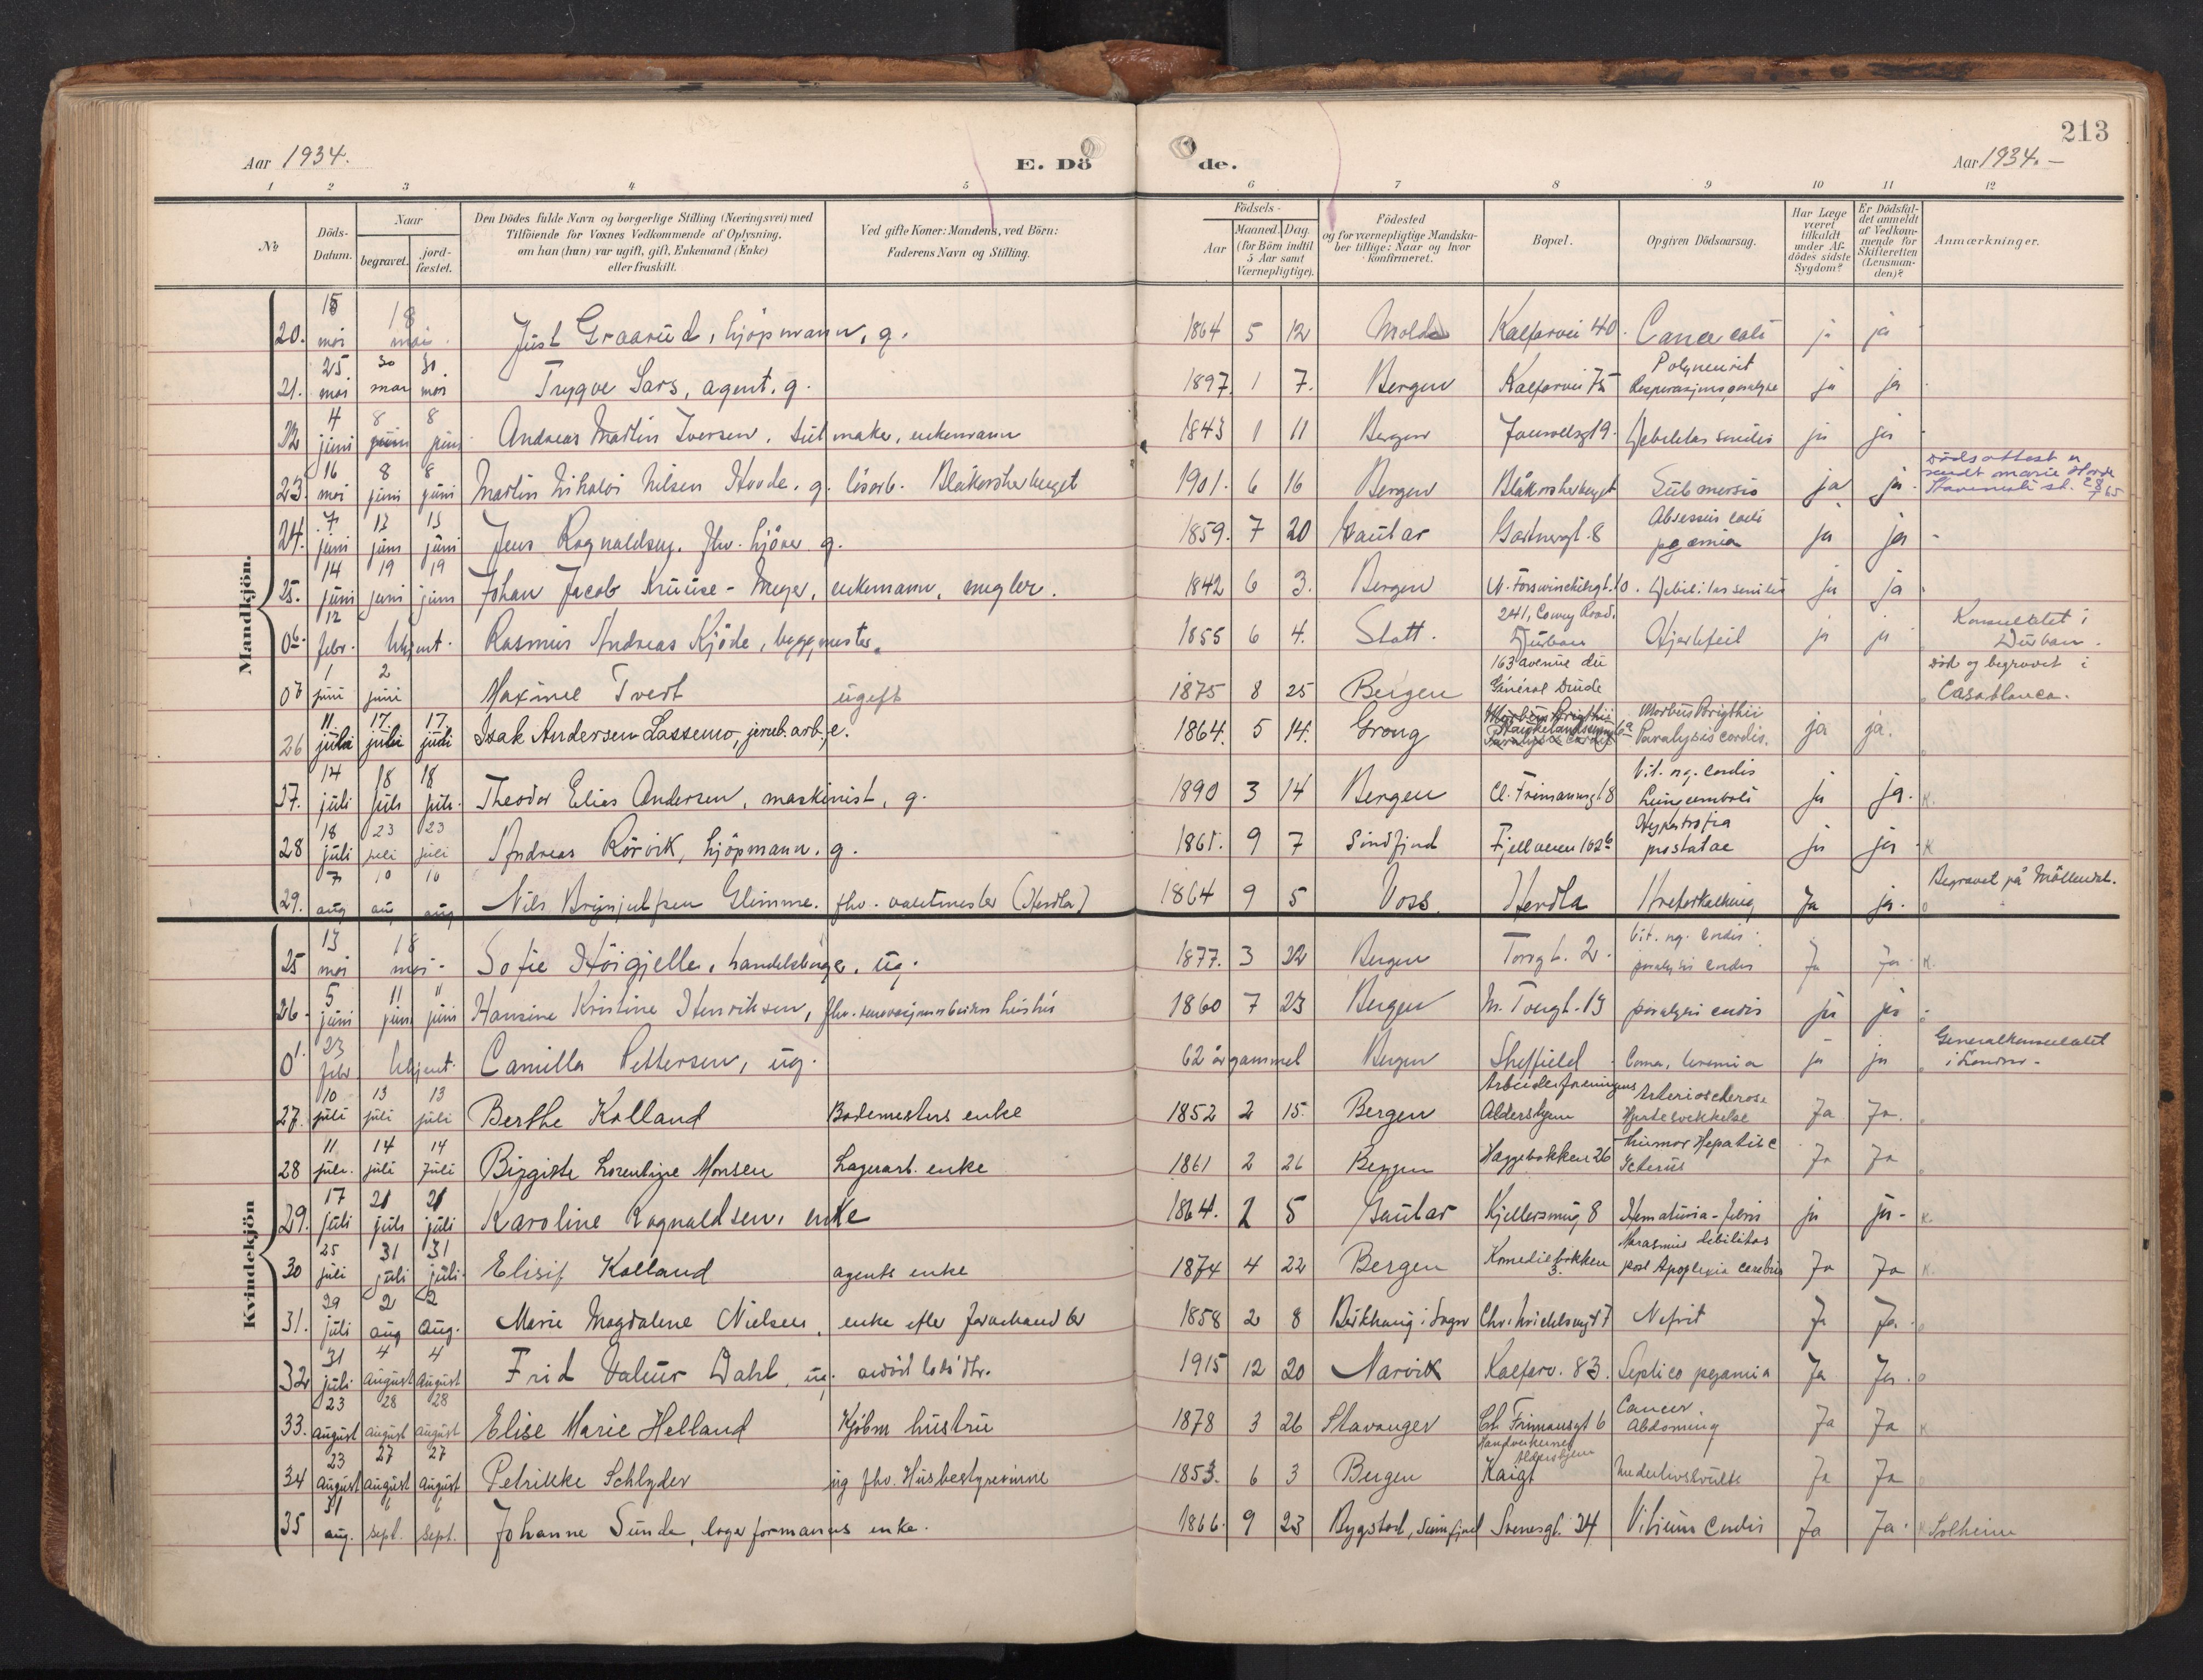 213
Aar 1934.
E. Dö
de.
Aar 1934. –
1 2 3 4 5 6 7 8 9 10 11 12
No
Döds-
Datum.
Naar
begravet.
jord-
fæstet.
Den Dödes fulde Navn og borgerlige Stilling (Næringsvei) med
Tilföiende for Voxnes Vedkommende af Oplysning,
om han (hun) var ugift, gift, Enkemand (Enke)
eller fraskilt.
Ved gifte Koner: Mandens, ved Börn:
Faderens Navn og Stilling.
Födsels-
Aar
Maaned. Dag.
(for Börn indtil
5 Aar samt
Værnepligtige).
Födested
og for værnepligtige Mandska-
ber tillige: Naar og hvor
konfirmeret.
Bopæl.
Opgiven Dödsaarsag.
Har Læge
været
tilkaldt
under Af-
dödes sidste
Sygdom?
Er Dödsfal-
det anmeldt
af Vedkom-
mende for
Skifteretten
(Lensman-
den)?
Anmærkninger.
Mandkjön.
20. 15 mai 18 mai Just Graarud, kjöpmann, g. 1864 5 12 Molde Kalfarvei 40. Cancer coli ja ja
21. 25 mai 30 mai 30 mai Trygve Sars, agent. g. 1897 1 7. Bergen Kalfarvei 75 Polyneurit ja ja
22 4 juni 8 juni 8 juni Andreas Martin Iversen, enkemann 1843 1 11 Bergen Debilitas senilis ja ja
23. 16 mai 8 juni 8 juni Martin Nikolai Nilsen Hovde. g. lösarb. Blåkorsherberget 1901. 6 16 Bergen Blåkorsherberget Submersio ja ja. Dödsattest er sendt Marie Hovde
24. 7 juni 12 juni 13 juni Jens Ragnaldsen. fhv. g. 1859. 7 20 Gaular Gartnergt. 8 Absessus coli pyæmia ja ja –
25. 14 juni 19 juni 19 juni Johan Jacob Kruuse-Meyer, enkemann, megler. 1842 6 3. Bergen Debilitas senilis ja ja
06. 12 febr. Ukjent. Rasmus Andreas Kjöde, byggmester. 1855 6 4. Statt. 241, Cowey Road. Durban Hjertefeil ja ja Konsulatet i Durban.
07 1 juni 2 juni Maxime Tvedt ugift 1875 8 25 Bergen 163 avenue du Général Drude död og begravet i Casablanca.
26 11. juli 17. juli 17. juli Isak Andersen Lassemo, jernb.arb., e. 1864. 5 14. Grong Morbus Brigthii Paralysis cordis. ja ja.
27. 14 juli 18 juli 18 juli Theodor Elias Andersen, maskinist, g. 1890 3 14 Bergen Cl. Frimannsgt 8 Vit. org. cordis Lungeemboli ja ja. K.
28 18 juli 23 juli 23 juli Andreas Rörvik, kjöpmann. g. 1865. 9 7 Söndfjord Fjellveien 102b Hypertrofia prostatae ja ja K
29. 7 aug 10 au 10 aug Nils Brynjulfsen Glimme. fhv. (Herdla) 1864 9 5 Voss. Herdla Åreforkalkning Ja ja. o Begravet på Möllendal.
Kvindekjön
25 13 mai 18 mai. Sofie Höigjelle, handelsborger, ug. 1877. 3 22 Bergen Torvgt. 2. Vit. org. cordis paralysis cordis Ja Ja. K.
26. 5 juni 11 juni 11 juni Hansine Kristine Henriksen, fhv. renovasjonsarbeiders hustru 1860 7 23 Bergen paralysis cordis ja ja
01. 23 febr Ukjent. Camilla Pettersen, ug. 62 år gammel Bergen Sheffield Coma, Uremia ja ja Generalkonsulatet i London –
27. 10 juli 13 juli 13 juli Berthe Kalland Bademesters enke 1852 2 15. Bergen Arbeiderforeningens Aldershjem Arteriosclerose Hjertesvekkelse Ja Ja.
28 11 juli. 14 juli 14 juli Birgitte Lorentzine Monsen Lagerarb. enke 1861 2 26 Bergen Heggebakken 26 Tumor Hepatis c Icterus Ja Ja
29. 17 juli 21 juli 21 juli Karoline Ragnaldsen, enke 1864. 2 5 Gaular Kjellersmug 8 Hematuria – febris ja ja – K.
30 25 juli 31 juli 31 juli. Elisif Kalland agents enke 1874 4 22 Bergen Komediebakken 3. Marasmus debilitas post Apoplexia cerebri Ja Ja K.
31. 29 juli 2 aug 2 aug. Marie Magdalene Nielsen, enke efter 1858 2 8 Nefrit Ja Ja. o
32 31 juli 4 August 4 August Frid Dahl, ug. 1915 12 20 Narvik Kalfarv. 83. Septico pyæmia Ja Ja. o
33. 23 august 28 august 28 august Elise Marie Helland Kjöbm hustru 1878 3 26 Stavanger Cl. Frimansgt 6 Cancer Abdoming Ja Ja K.
34 23 August 27 August 27 August Petrikke Schlyder ug fhv. Husbestyrerinne 1853. 6 3 Bergen Handverkernes Aldershjem Kaigt Underlivssvulst Ja Ja o
35 31 aug. 6 sept. 6 sept. Johanne Sunde, lagerformanns enke. 1866. 9 23 Bygstad, Sunnfjord Sverresgt. 24 Vitium Cordis Ja Ja. K Solheim